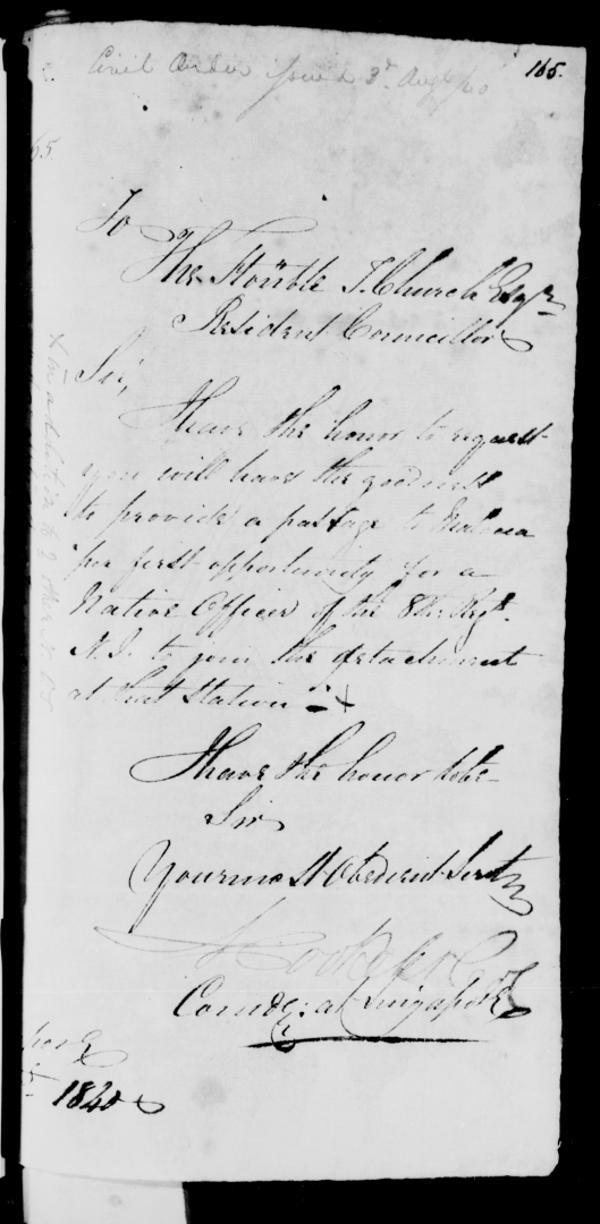 165.
Civil Order issued 3d. Augt /40
To
The Honble T. Church Esqre
Resident Councillor
Sir,
I have the honor to request
you will have the goodness
to provide a passage to Malacca
per first opportunity for a
Native Officer of the 8th. Regt.
N.I. to join the detachment
at that Station - x
x in addition to 2 other
I have the honor to be
Sir
Your most Obedient Servt
Comdg: at Singapore
1840